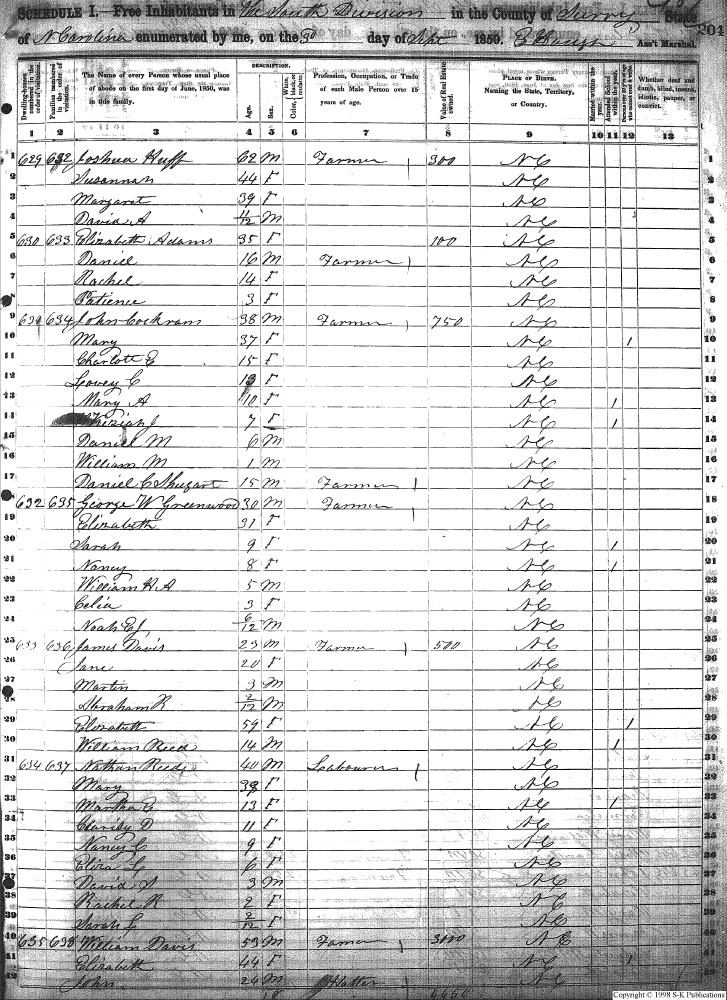 SCHEDULE I.—Free Inhabitants in The South Division in the County of Surry State
of N Carolina enumerated by me, on the 3d day of Sept 1850. Ass't Marshal.
201
Dwelling-houses numbered in the order of visitation.
Families numbered in the order of visitation.
The Name of every Person whose usual place of abode on the first day of June, 1850, was in this family.
DESCRIPTION.
Age.
Sex.
Profession, Occupation, or Trade of each Male Person over 15 years of age.
Value of Real Estate owned.
PLACE OF BIRTH. Naming the State, Territory, or Country.
Married within the year.
Attended School within the year.
Whether deaf and dumb, blind, insane, idiotic, pauper, or convict.
1 2 3 4 5 6 7 8 9 10 11 12 13
1 629 632 Joshua Huff 62 M Farmer 300 NC 1
2 Susannah 44 F NC 2
3 Margaret 39 F NC 3
4 David A 11/12 M NC 4
5 630 633 Elizabeth Adams 35 F 100 NC 5
6 Daniel 16 M Farmer NC 6
7 Rachel 14 F NC 7
8 Patience 3 F NC 8
9 631 634 John Cockram 38 M Farmer 750 NC 9
10 Mary 37 F NC 1 10
11 Charlott E 15 F NC 11
12 Lovey C 13 F NC 12
13 Mary A 10 F NC 1 13
14 J 7 F NC 1 14
15 Daniel M 6 M NC 15
16 William M 1 M NC 16
17 Daniel C Shugart 15 M Farmer NC 17
18 632 635 George W Greenwood 30 M Farmer NC 18
19 Elizabeth 31 F NC 19
20 Sarah 9 F NC 1 20
21 Nancy 8 F NC 1 21
22 William H A 5 M NC 22
23 Celia 3 F NC 23
24 Noah E J 6/12 M NC 24
25 633 636 James Davis 23 M Farmer 500 NC 25
26 Jane 20 F NC 26
27 Martin 3 M NC 27
28 Abraham R 2/12 M NC 28
29 Elizabeth 59 F NC 1 29
30 William Reed 14 M NC 1 30
31 634 637 Nathan Reed 40 M Labourer NC 31
32 Mary 38 F NC 32
33 Martha E 13 F NC 1 33
34 Clarisy D 11 F NC 34
35 Nancy C 9 F NC 35
36 Eliza L 6 F NC 36
37 David S 3 M NC 37
38 Rachel R 2 F NC 38
39 Sarah L 2/12 F NC 39
40 635 638 William Davis 53 M Farmer 3000 NC 40
41 Elizabeth 44 F NC 1 41
42 John 24 M Hatter NC 42
Copyright © 1998 S-K Publications